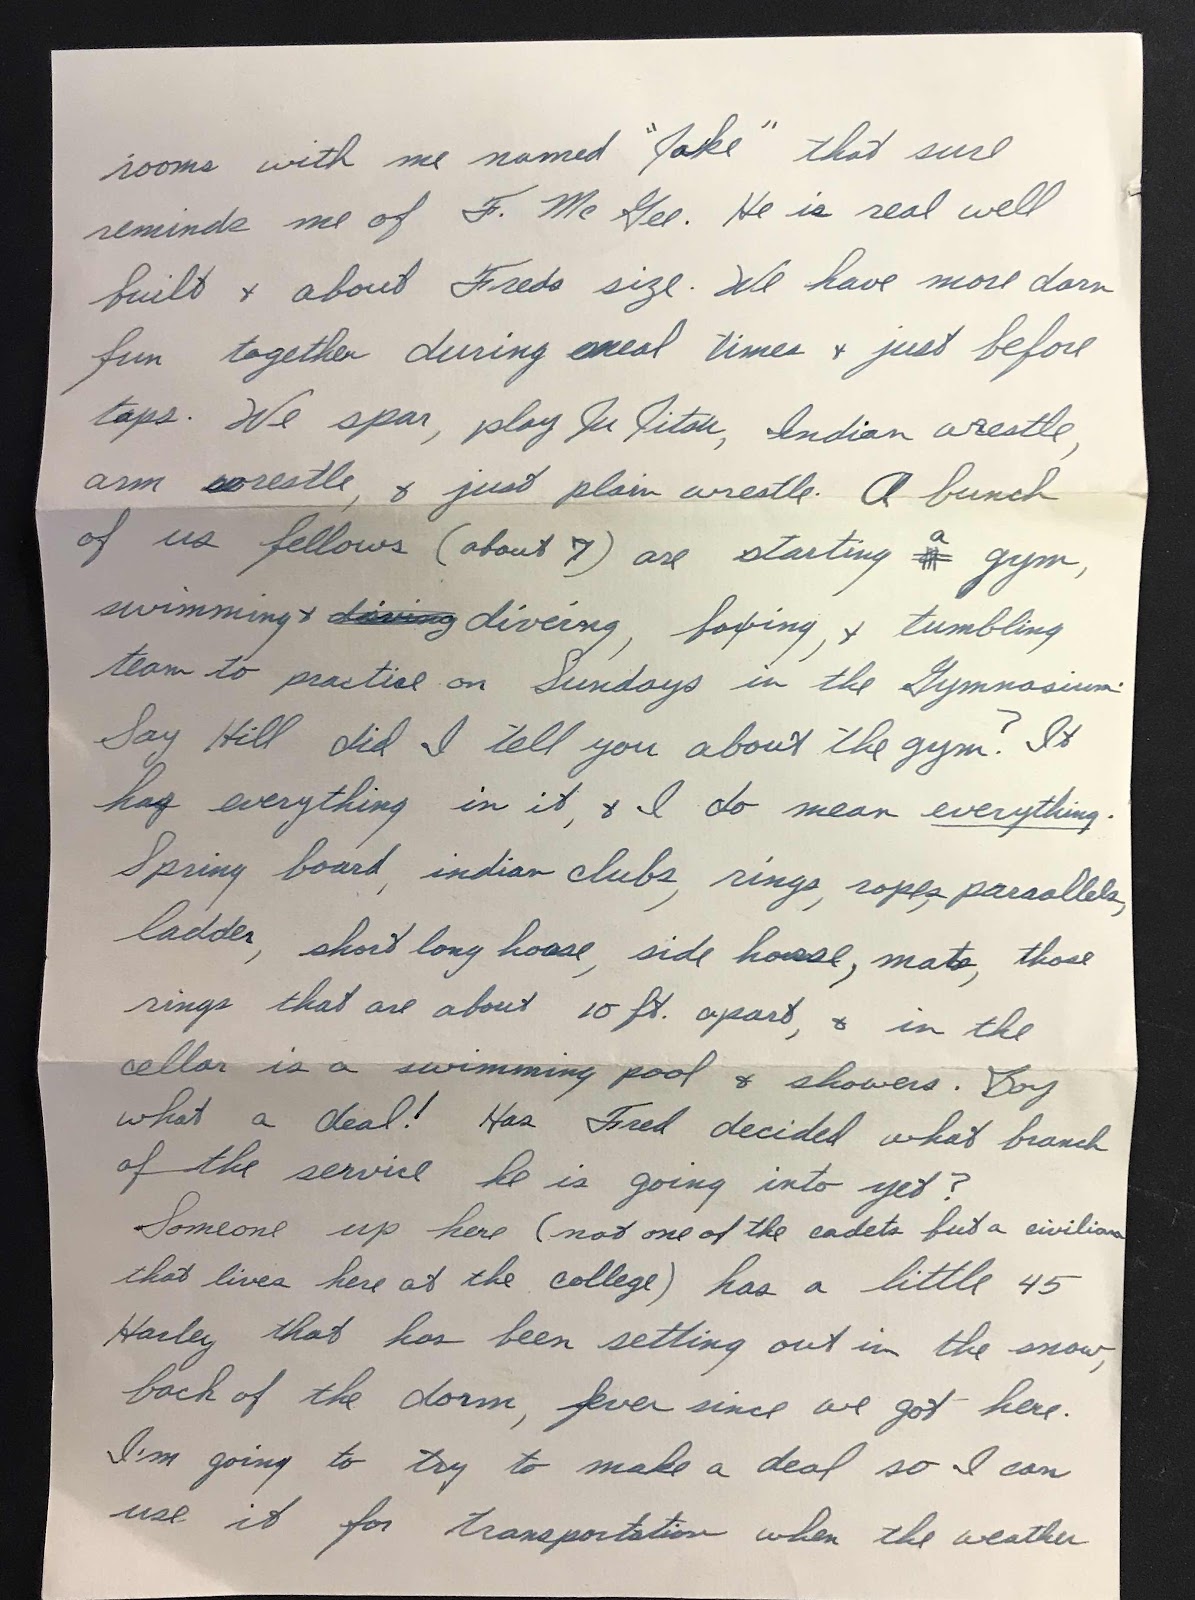 rooms with me named "Jake" that sure
reminds me of F. Mc Gee. He is real well
built & about Freds size. We have more darn
fun together during meal times & just before
taps. We spar, play Ju Jitsu, Indian wrestle,
arm wrestle, & just plain wrestle. A bunch
of us fellows (about 7) are starting a gym,
swimming & diving diveing, boxing, & tumbling
team to practice on Sundays in the Gymnasium.
Say Hill did I tell you about the gym? It
has everything in it, & I do mean everything.
Spring board, indian clubs, rings, ropes, parallels,
ladder, short long horse, side horse, mats, those
rings that are about 10 ft. apart, & in the
cellar is a swimming pool & showers. Boy
what a deal! Has Fred decided what branch
of the service he is going into yet?
Someone up here (not one of the cadets but a civilian
that lives here at the college) has a little 45
Harley that has been setting out in the snow,
back of the dorm, ever since we got here.
I'm going to try to make a deal so I can
use it for transportation when the weather